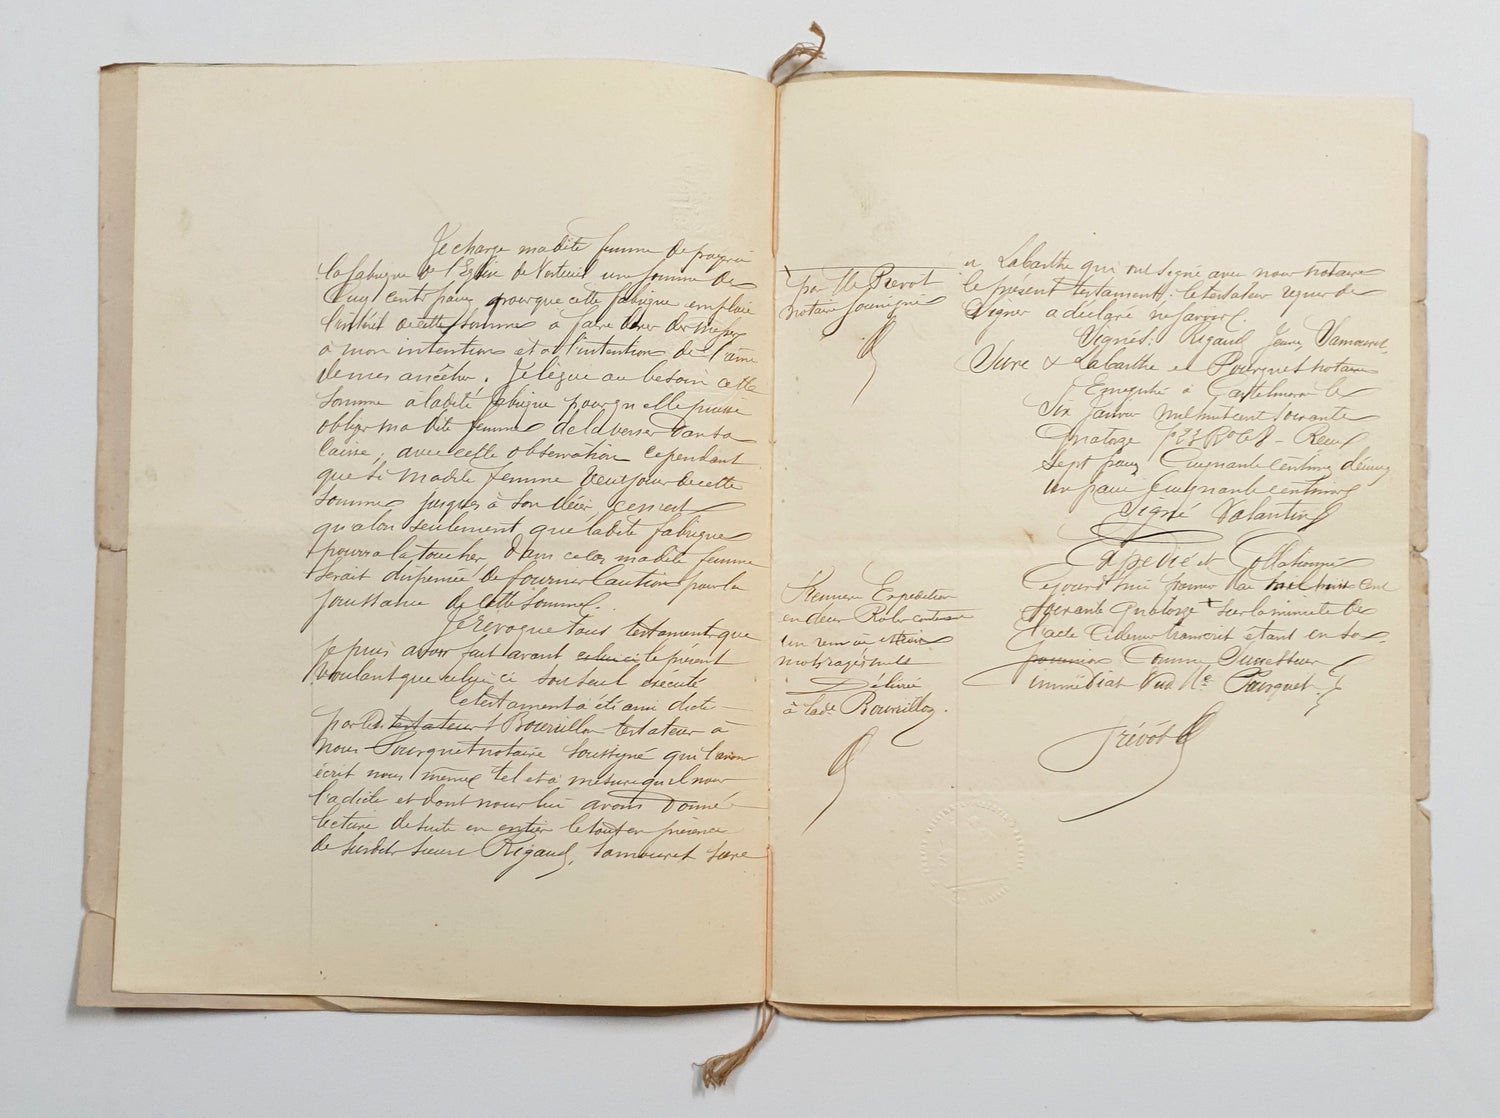 Je charge madite femme de payer à
la fabrique de l'Eglise de Verteuil une somme de
cent francs pour que cette fabrique emploie
l'intérêt de cette somme à faire dire des messes
à mon intention et à l'intention de l'âme
de mes ancêtres. Je lègue au besoin cette
somme à ladite fabrique pour qu'elle puisse
obliger madite femme de la verser dans sa
caisse, avec cette observation cependant
que si madite femme veut jouir de cette
somme jusques à son décès ce n'est
qu'alors seulement que ladite fabrique
pourra la toucher, dans ce cas madite femme
serait dispensée de fournir caution pour la
jouissance de cette somme.
Je révoque tous testaments que
je puis avoir fait avant celui ci le présent
voulant que celui ci soit seul exécuté
Ce testament a été ainsi dicté
par testateur Bouruillon testateur à
nous Pourquet notaire soussigné qui l'avons
écrit nous même tel et à mesure qu'il nous
l'a dicté et dont nous lui avons donné
lecture de suite en entier le tout en présence
de susdits sieurs Rigaud, Lamouret Sure
par Me Prévot
notaire soussigné
et Labarthe qui ont signé avec nous notaire
le présent testament; le testateur requis de
signer a déclaré ne savoir.
Signés: Rigaud Jeune, Lamouret,
Sure & Labarthe et Pourquet notaire
Enregistré à Castelmoron le
six Janvier mil huit cent soixante
quatorze Reçu
sept francs cinquante centimes décimes
un franc cinquante centimes
Signé Valantin
Expédié et Collationné
Cejourd'hui mil huit cent
soixante quatorze sur la minute de
l'acte ci dessus transcrit étant en sa
possession comme successeur
immédiat dud. Me Pourquet
Prévôt
Première Expédition
en deux Rôles contenant
un renvoi et
mots rayés nuls
Délivré
à lad. Bouruillon.